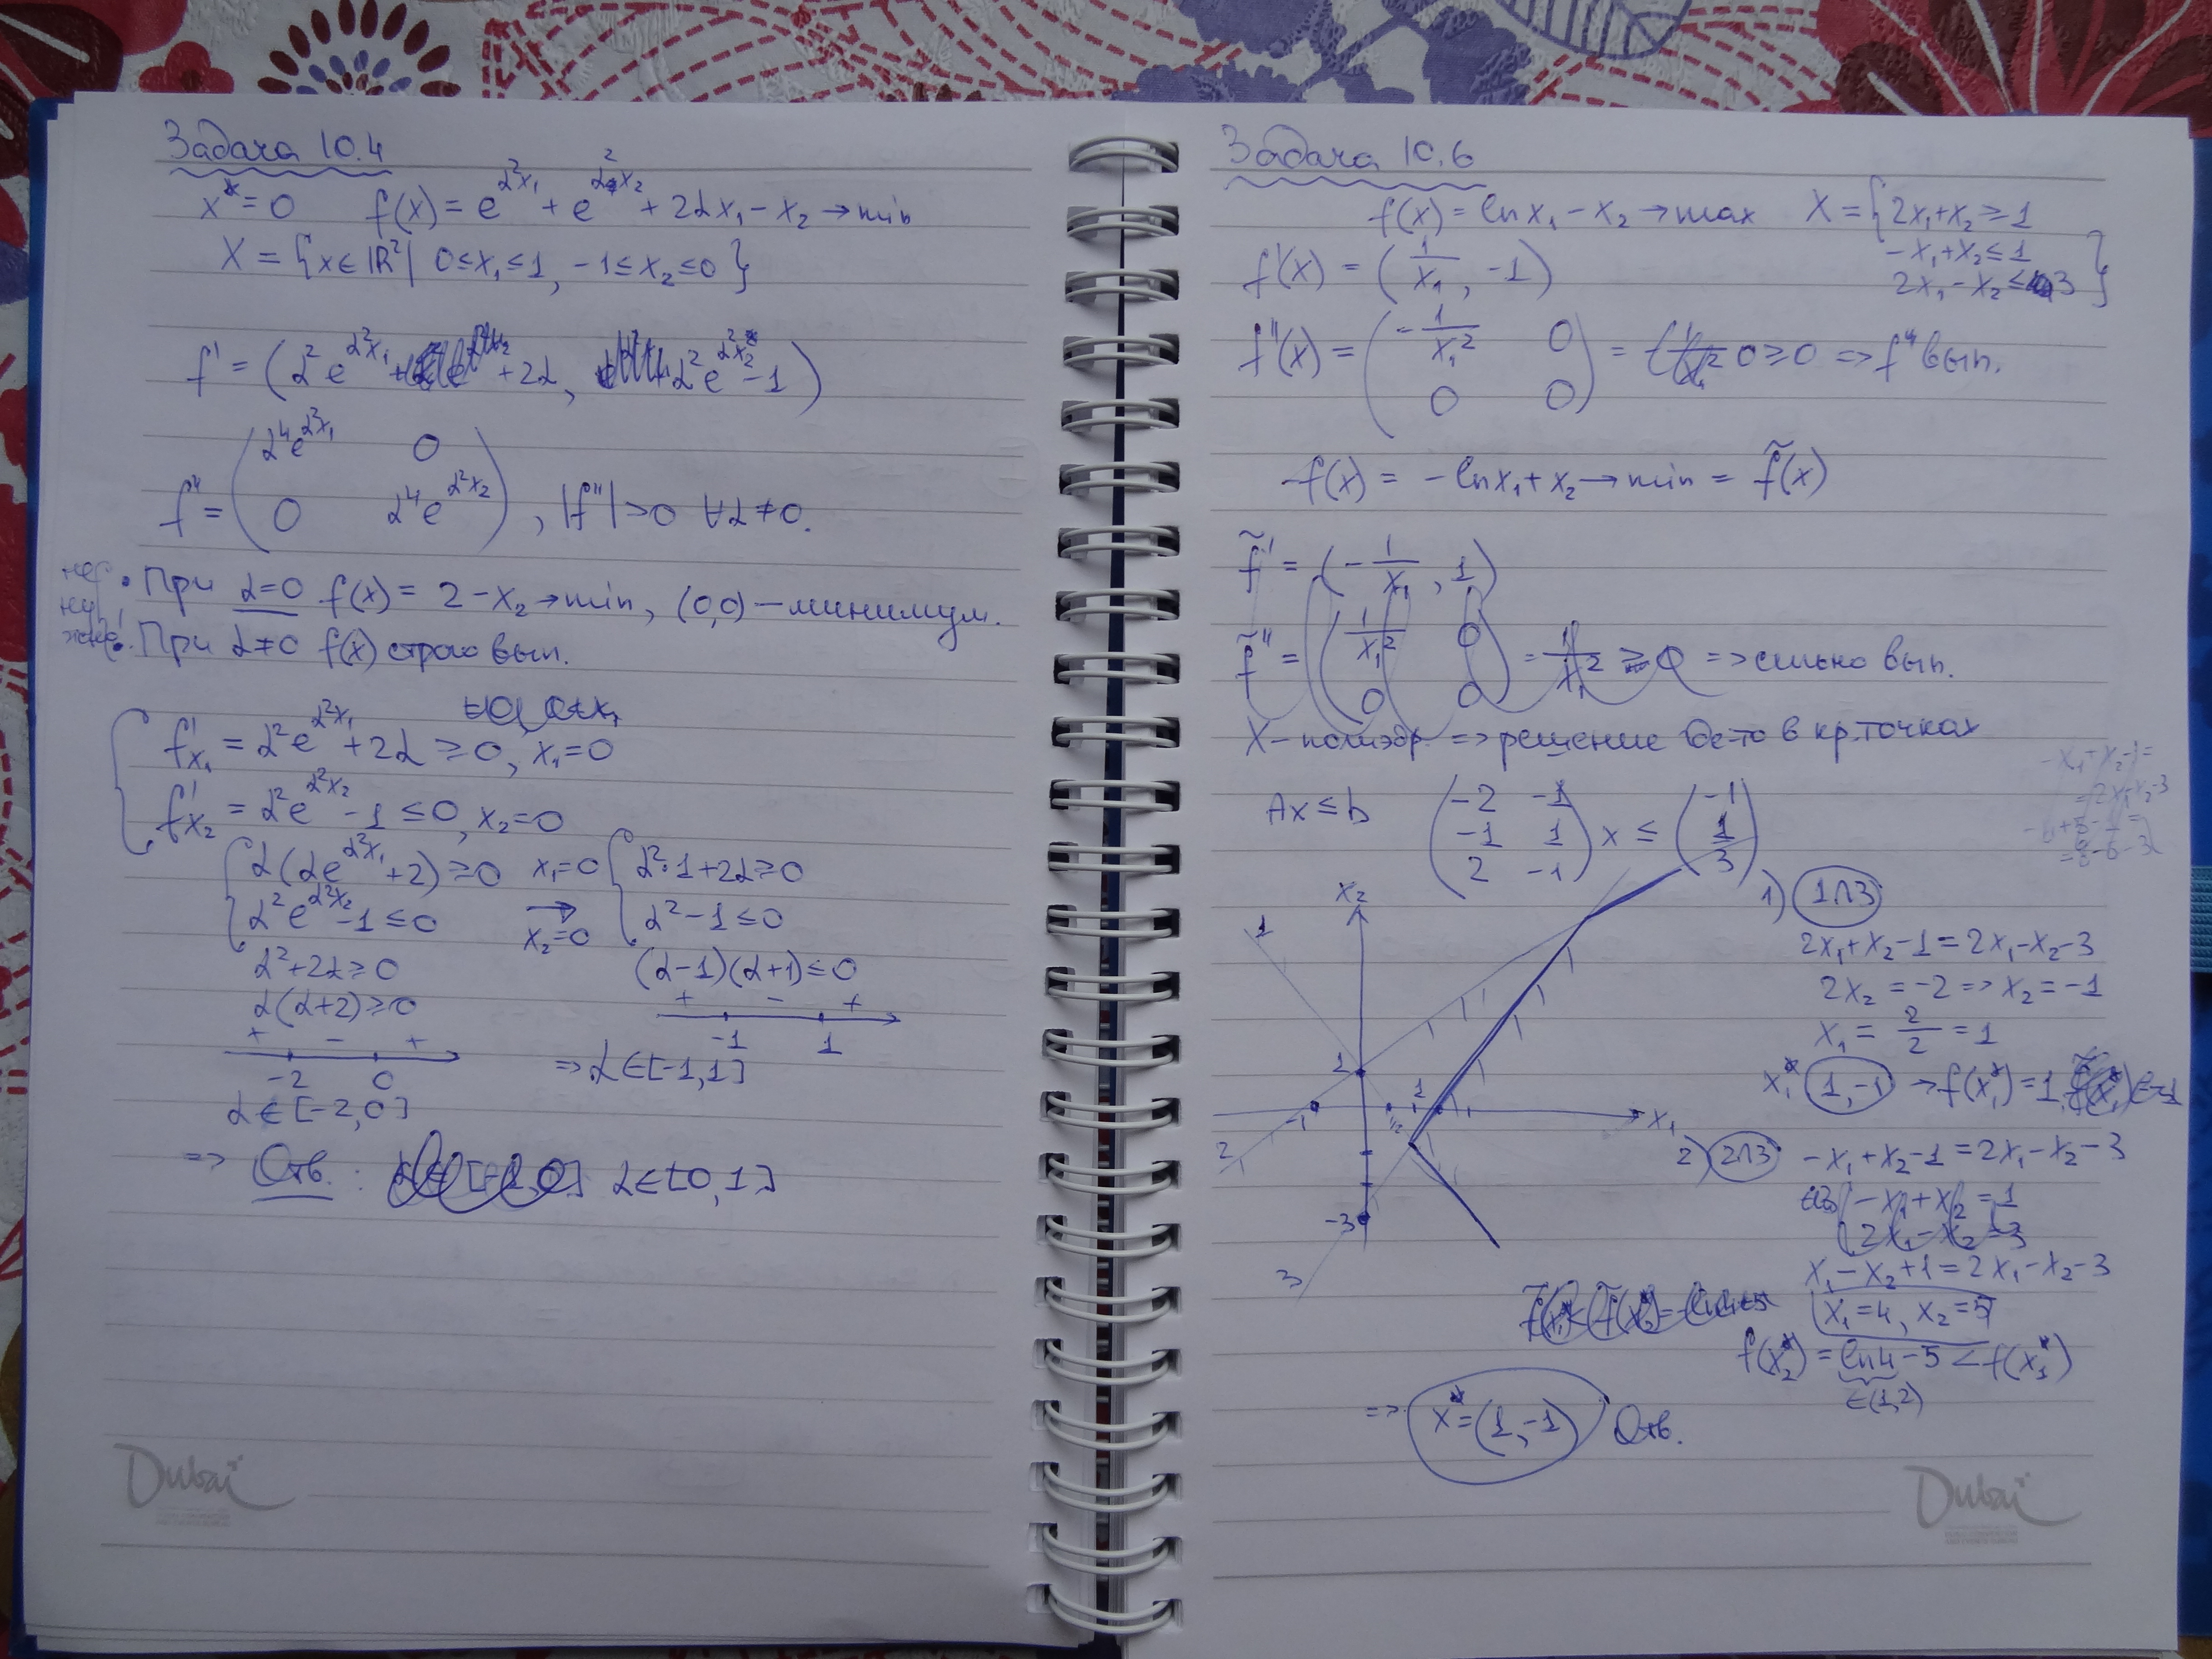 Задача 10.4
x* = 0 f(x) = e^{α²x₁} + e^{α²x₂} + 2αx₁ - x₂ → min
X = {x ∈ ℝ² | 0 ≤ x₁ ≤ 1, -1 ≤ x₂ ≤ 0}
f' = (α² e^{α²x₁} + 2α, α² e^{α²x₂} - 1)
α⁴e^{α²x₁} 0
f'' = 0 α⁴e^{α²x₂} , |f''| > 0 ∀α ≠ 0.
• При α=0 f(x) = 2 - x₂ → min, (0,0) - минимум.
• При α≠0 f(x) строго вып.
f'x₁ = α²e^{α²x₁} + 2α ≥ 0, x₁ = 0
f'x₂ = α²e^{α²x₂} - 1 ≤ 0, x₂ = 0
α(αe^{α²x₁} + 2) ≥ 0 x₁=0 α²·1 + 2α ≥ 0
α²e^{α²x₂} - 1 ≤ 0 → x₂=0 α² - 1 ≤ 0
α² + 2α ≥ 0 (α-1)(α+1) ≤ 0
α(α+2) ≥ 0 + - +
+ - + -1 1
-2 0 => α ∈ [-1, 1]
α ∈ [-2, 0]
=> Отв. : α ∈ [0, 1]
Dubai
Задача 10.6
f(x) = ln x₁ - x₂ → max X = {2x₁ + x₂ ≥ 1
-x₁ + x₂ ≤ 1
2x₁ - x₂ ≤ 3}
f'(x) = (1/x₁, -1)
f''(x) = -1/x₁² 0 = 0 ≥ 0 => f'' вып.
0 0
-f(x) = -ln x₁ + x₂ → min = f̃(x)
f̃' = (-1/x₁, 1)
f̃'' = 1/x₁² 0 = 1/x₁² ≥ 0 => сильно вып.
0 0
X - полиэдр. => решение где-то в кр. точках
Ax ≤ b
-2 -1 -1
-1 1 x ≤ 1
2 -1 3
x₂ x₁ 1 2 3 1 -1 1/2 1 -3
1) 1∩3
2x₁ + x₂ - 1 = 2x₁ - x₂ - 3
2x₂ = -2 => x₂ = -1
x₁ = 2/2 = 1
x₁* (1, -1) → f(x₁*) = 1
2) 2∩3 -x₁ + x₂ - 1 = 2x₁ - x₂ - 3
-x₁ + x₂ = 1
2x₁ - x₂ = 3
x₁ - x₂ + 1 = 2x₁ - x₂ - 3
x₁ = 4, x₂ = 5
f(x₂*) = ln4 - 5 < f(x₁*)
∈(1,2)
=> x* = (1, -1) Отв.
Dubai